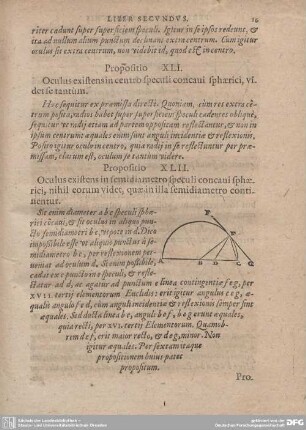 LIBER SECVNDVS.
riter cadunt super superficiem speculi. Igitur in se ipsos redeunt, &
ita ad nullum alium punctum declinant extra centrum. Cum igitur
oculus sit extra centrum, non videbit id, quod est in centro.
Propositio XLI.
Oculus existens in centro speculi concaui sphærici, vi-
det se tantum.
Hæc sequitur ex præmissa directè. Quoniam, cum res extra cẽ-
trum posita, radios habet super superficiem speculi cadentes obliquè,
sequitur vt radij à tero ad partem oppositam reflectuntur, & non in
ipsum centrum: æquales enim sunt anguli incidentiæ & reflexionis.
Posito igitur oculo in centro, quia radij in se reflectuntur per præ-
missam, clarum est, oculum se tantum videre.
Propositio XLII.
Oculus existens in semidiametro speculi concaui sphæ-
rici, nihil eorum videt, quæ in illa semidiametro conti-
nentur.
Sit enim diameter a b c speculi sphæ-
rici concaui, & sit oculus in aliquo pun-
cto semidiametri b c, vt pote in d. Dico
impossibile esse vt aliquis punctus in se-
midiametro b c, per reflexionem per-
ueniat ad oculum d. Si enim possibile,
cadat
puncto in e speculi, & refle-
ctatur ad d, ac agatur ad punctum e linea contingentiæ f e g, per
XVII. tertij elementorum Euclidis: erit igitur angulus c e g, æ-
qualis angulo f e d, cùm anguli incidentiæ & reflexionis semper sint
æquales. Sed ducta linea b e, anguli b e f, b e g erunt æquales,
quia recti, per XVI. tertij Elementorum. Quamob-
rem d e f, erit maior recto, & c e g, minor. Non
igitur æquales. Per sextam itaque
propositionem huius patet
propositum.
F
E
A B D C G
Pro.